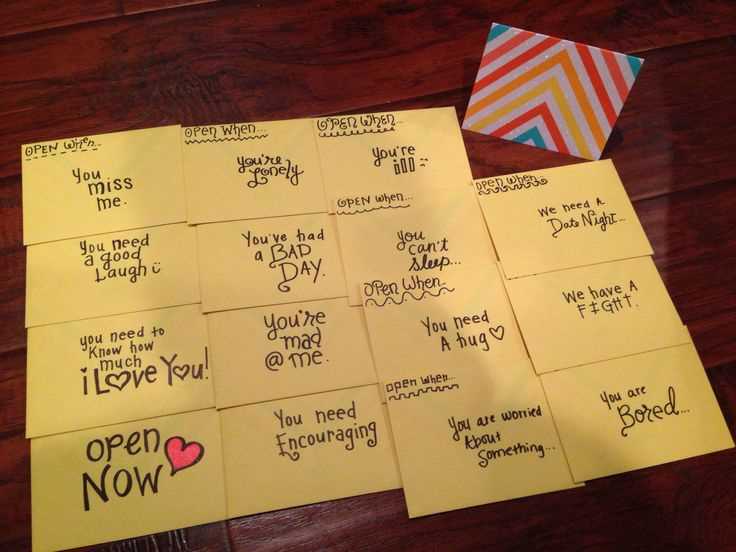 OPEN When...
You
miss
me.
You need
a good
Laugh
you need to
Know how
much
i Love You!
OPEN
NOW
OPEN WHEN...
You're
Lonely
You've had
a BAD
DAY.
You're
mad
@ me.
You need
Encouraging
OPEN WHEN...
You're
ill
OPEN WHEN...
you
can't
sleep...
OPEN WHEN...
You Need
A hug
open when...
You are worried
About
Something...
OPEN WHEN...
We need A
Date Night...
We have A
FIGHT.
You are
Bored...